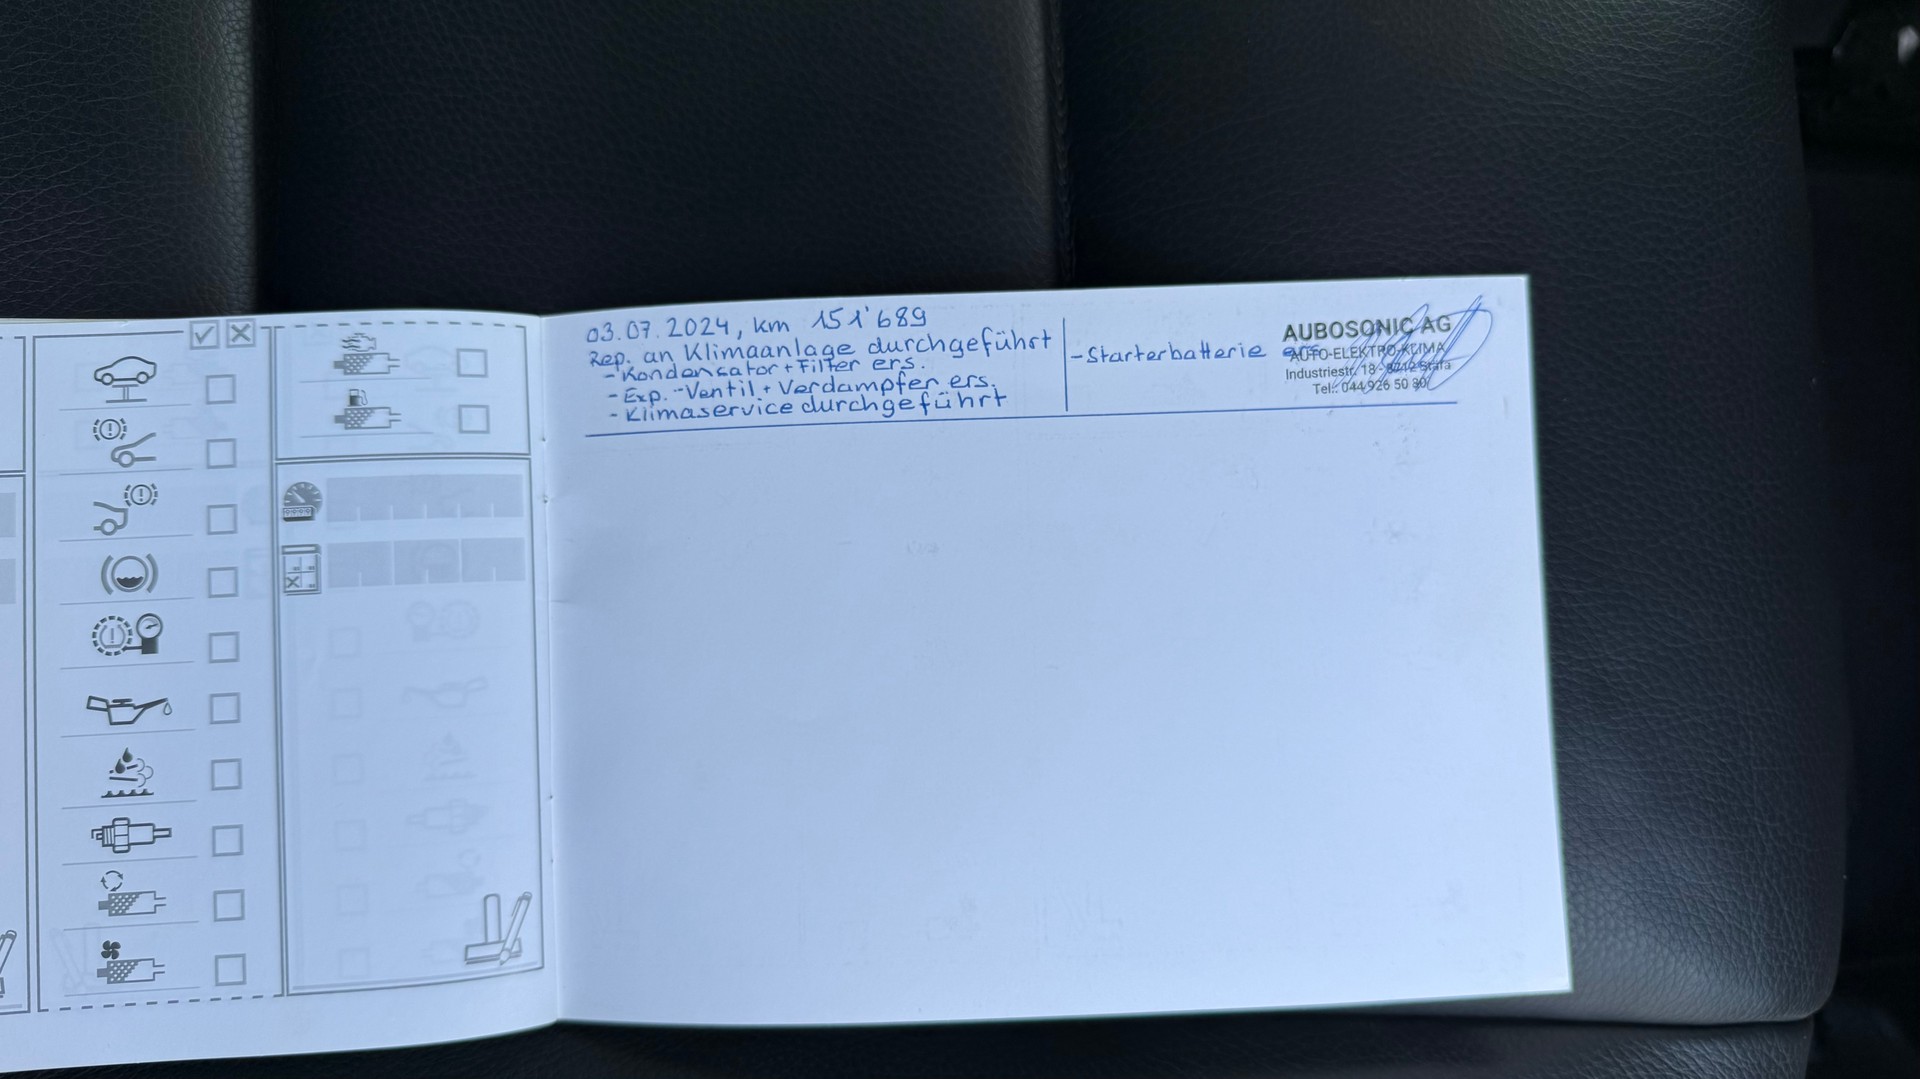 03.07.2024, km 151'689
Rep. an Klimaanlage durchgeführt
- Kondensator + Filter ers.
- Exp.-Ventil + Verdampfer ers.
- Klimaservice durchgeführt
- Starterbatterie ers.
AUBOSONIC AG
AUTO-ELEKTRO-KLIMA
Industriestr. 18 - 8712 Stäfa
Tel.: 044 926 50 80